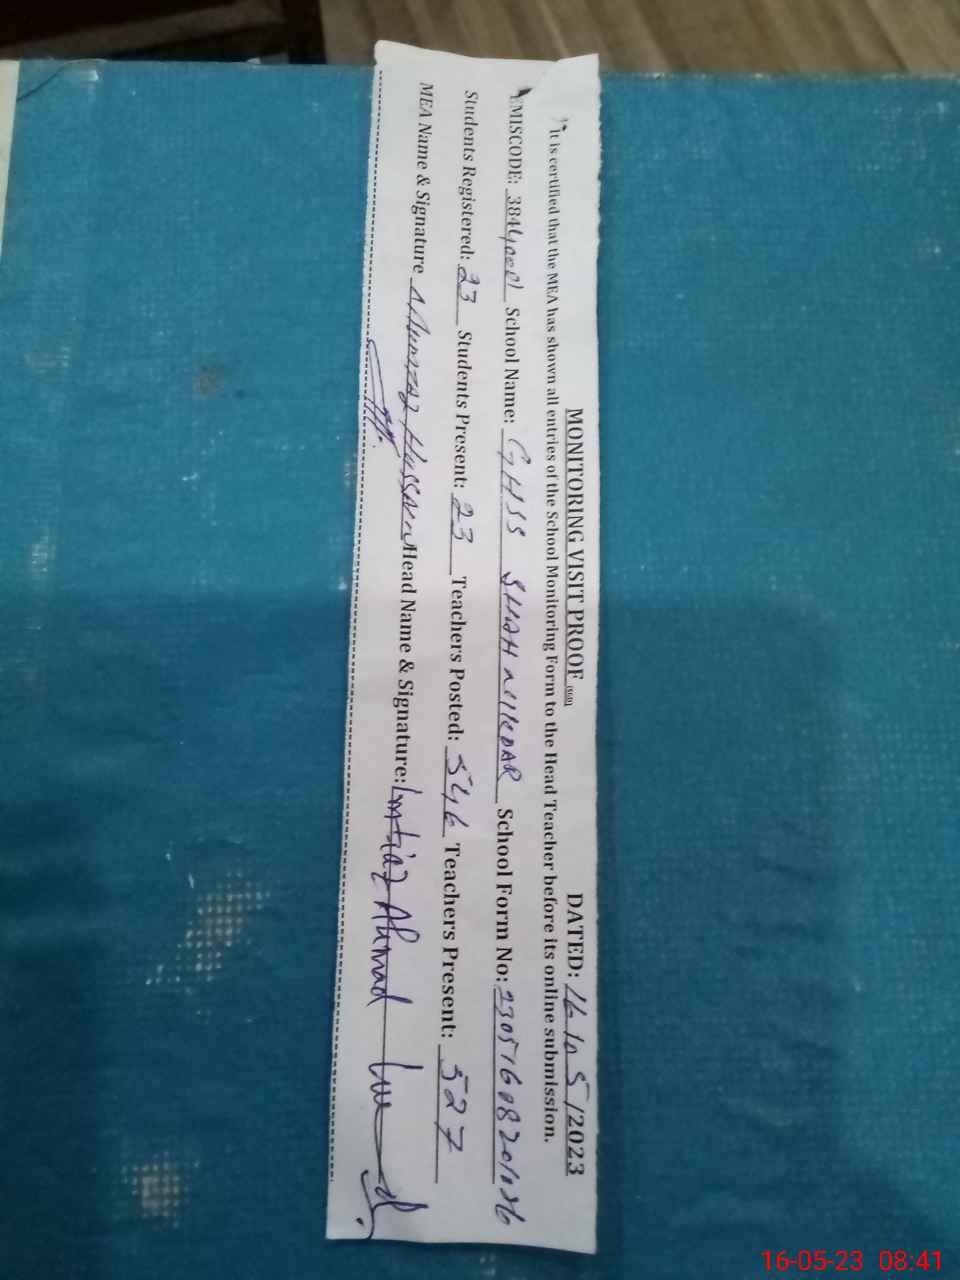 MONITORING VISIT PROOF DATED: 16/05/2023
It is certified that the MEA has shown all entries of the School Monitoring Form to the Head Teacher before its online submission.
EMISCODE: School Name: GHSS SHAH School Form No:
Students Registered: 23 Students Present: 23 Teachers Posted: 546 Teachers Present: 527
MEA Name & Signature Hussain Head Name & Signature: Imtiaz Ahmad
16-05-23 08:41